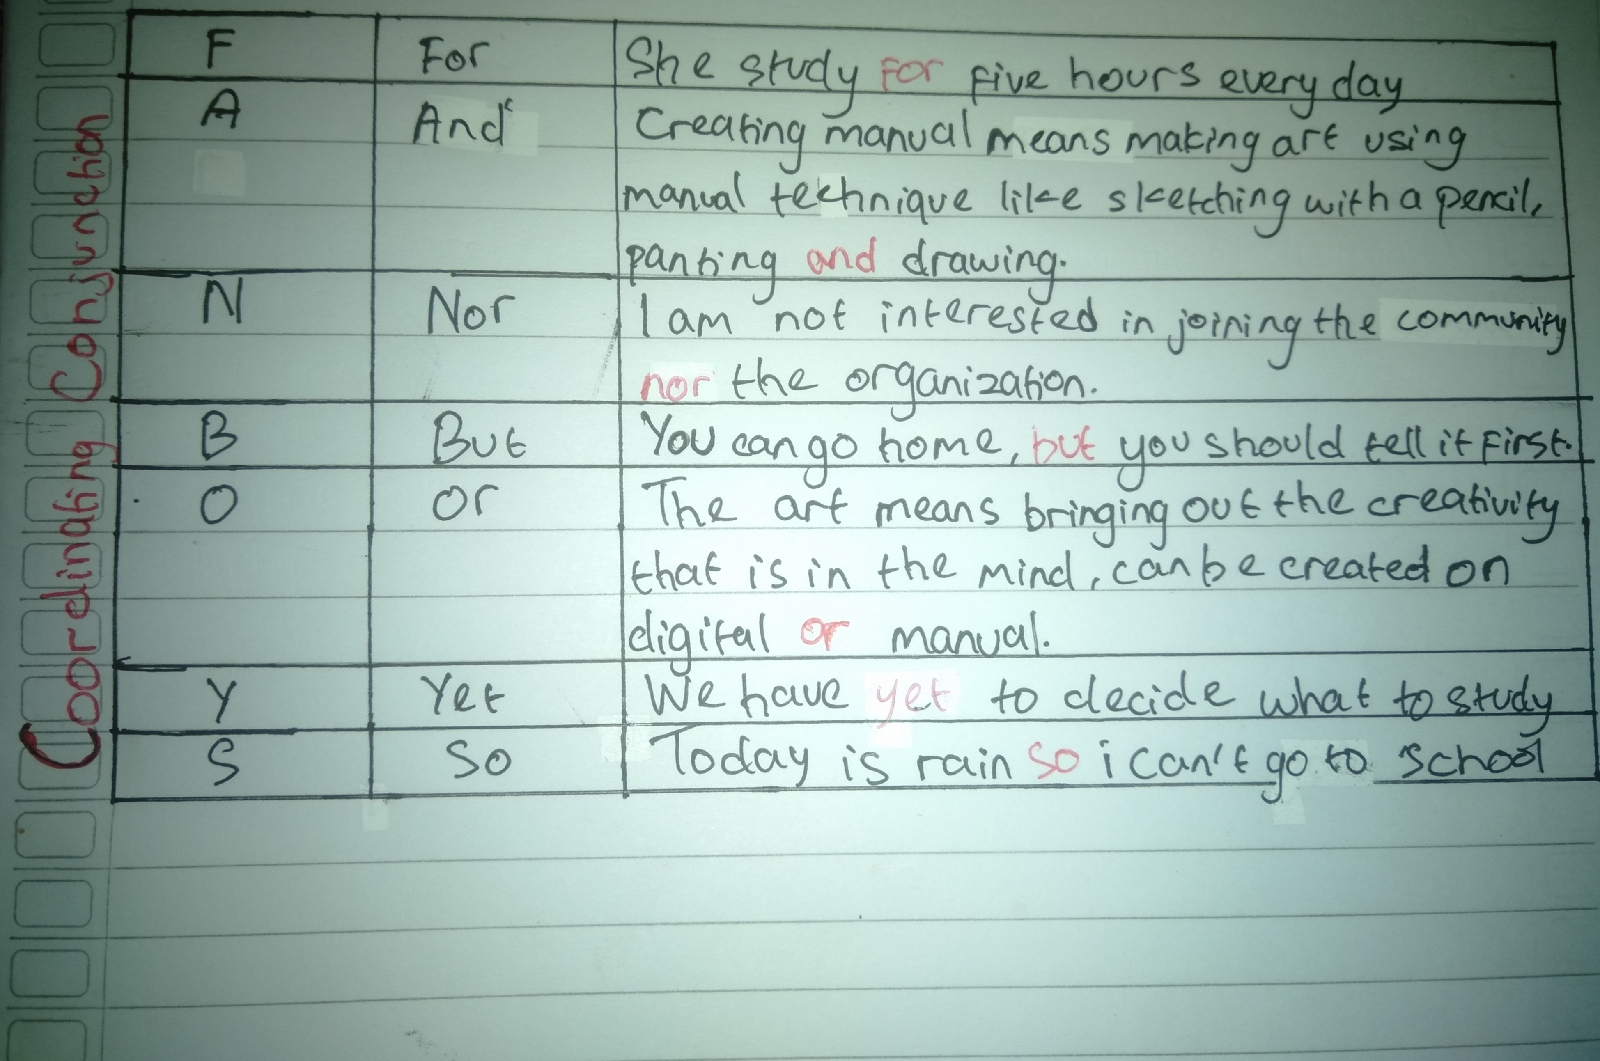 Coordinating Conjunction
F For She study for five hours every day
A And Creating manual means making art using
manual technique like sketching with a pencil,
panting and drawing.
N Nor I am not interested in joining the community
nor the organization.
B But You can go home, but you should tell it first.
O or The art means bringing out the creativity
that is in the mind, can be created on
digital or manual.
Y Yet We have yet to decide what to study
S So Today is rain so i can't go to school